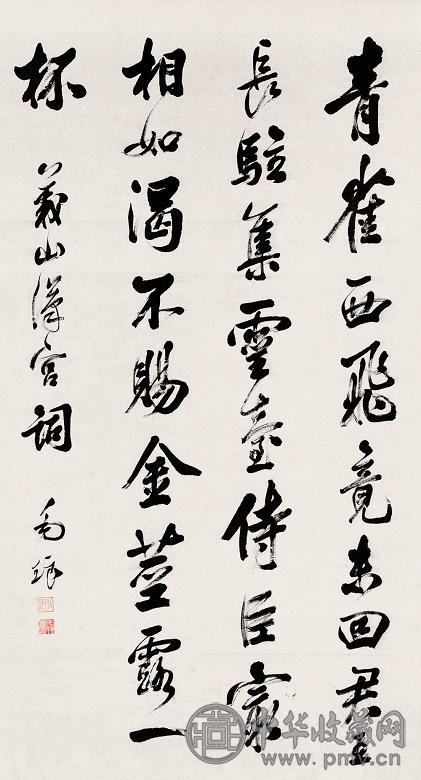 青雀西飛竟未回君王
長駐集靈臺侍臣最
相如渴不賜金莖露一
杯
義山漢宮詞
毛琛
中华收藏网